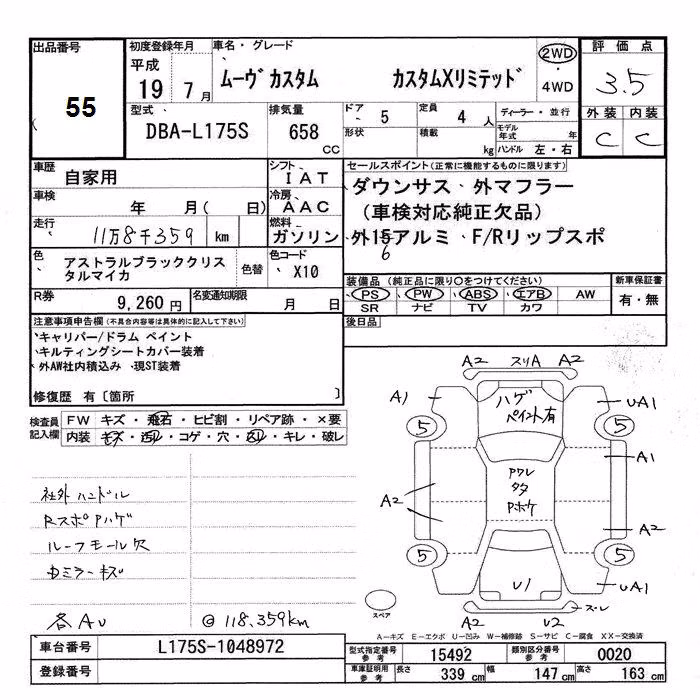 出品番号
55
初度登録年月
平成
19 7 月
車名・グレード
ムーヴ カスタム カスタムXリミテッド
2WD
・
4WD
評価点
3.5
外装 内装
C C
型式
DBA-L175S
排気量
658
CC
ドア 5
形状
定員 4 人
積載 kg
ディーラー・並行
モデル年式 年
ハンドル 左・右
車歴
自家用
シフト
IAT
車検
年 月( 日)
冷房
AAC
走行
11万8千359 km
燃料
ガソリン
色
アストラルブラッククリスタルマイカ
色替
色コード
X10
R券
9,260 円
名変通知期限
月 日
セールスポイント(正常に機能するものに限ります)
ダウンサス、外マフラー
(車検対応純正欠品)
外15アルミ、F/Rリップスポ
6
装備品(純正品に限り○をつけてください)
PS PW ABS エアB AW
SR ナビ TV カワ
新車保証書
有・無
後日品
注意事項申告欄(不具合内容等は具体的に記入して下さい)
キャリパー/ドラム ペイント
キルティングシートカバー装着
外AW社内積込み 現ST装着
修復歴 有〔箇所 〕
検査員
記入欄
FW キズ・飛石・ヒビ割・リペア跡・×要
内装 キズ・汚レ・コゲ・穴・凹レ・キレ・破レ
社外ハンドル
RスポPハゲ
ルーフモール欠
ドミラーキズ
各AU
@ 118.359km
A2 スリA A2
A1
ハゲ
ペイント有
UA1
5 5
A1
A2
Pワレ
タタ
Pホケ
A2
5 5
U1
UA1
スレ
A2 U2
スペア
A-キズ E-エクボ U-凹み W-補修跡 S-サビ C-腐食 XX-交換済
車台番号
L175S-1048972
登録番号
型式指定番号
参考
15492
類別区分番号
参考
0020
車庫証明用
参考
長さ 339 cm 幅 147 cm 高さ 163 cm